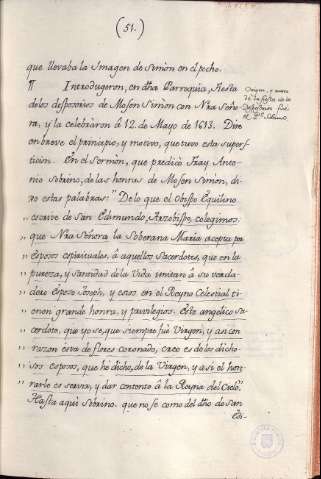 (51.)
que llevaba la Imagen de Simòn en el pecho.
¶ Introdugeron, en dha Parroquia, Fiesta
de los desposorios de Mosen Simon con Nra Seño-
ra, y la celebraron à 12. de Mayo de 1613. Dire
en breve el principio, y motivo, que tuvo esta supers-
ticion. En el Sermòn, que predicò Fray Anto-
nio Sobrino, de las honras de Mosen Simon, di-
ce estas palabras: De lo que el Obispo Equilino
escrive de San Edmundo, Arzobispo, colegimos
„ que Nra Señora, la Soberana Maria acepta pr
„ Esposos espirituales, à aquellos Sacerdotes, que en la
„ pureza, y santidad de la Vida imitan à su verda-
„ dero Esposo Joseph, y estos en el Reyno Celestial ti-
„ enen grande honra, y privilegios. Este angelico sa-
„ cerdote, que yo se, que siempre fuè Virgen, y asi con
„ razon està de flores coronado, creo es de los dicho-
„ sos esposos, que he dicho, de la Virgen, y asi el hon-
„ rarle es servir, y dar contento à la Reyna del Cielo.
Hasta aqui Sobrino. que no se como del dho de San
Ed-
Origen, y motivo
de la fiesta de los
Desposorios fue
el Pe. Sobrino.